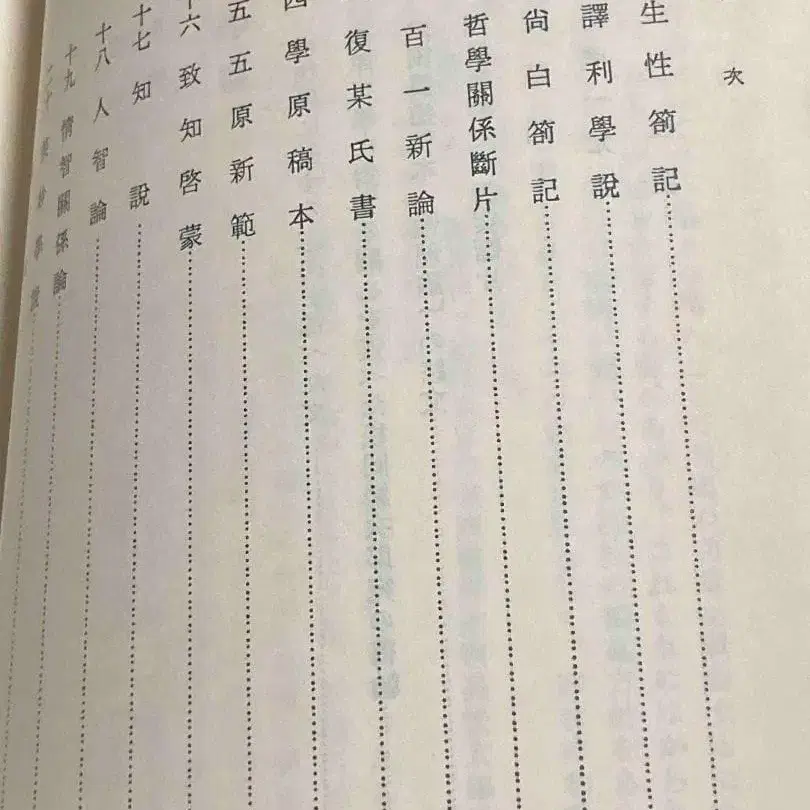 次
生性箚記
譯利學說
尙白箚記
哲學關係斷片
百一新論
復某氏書
四學原稿本
五五原新範
十六致知啓蒙
十七知說
十八人智論
十九情智關係論
二十美妙學說